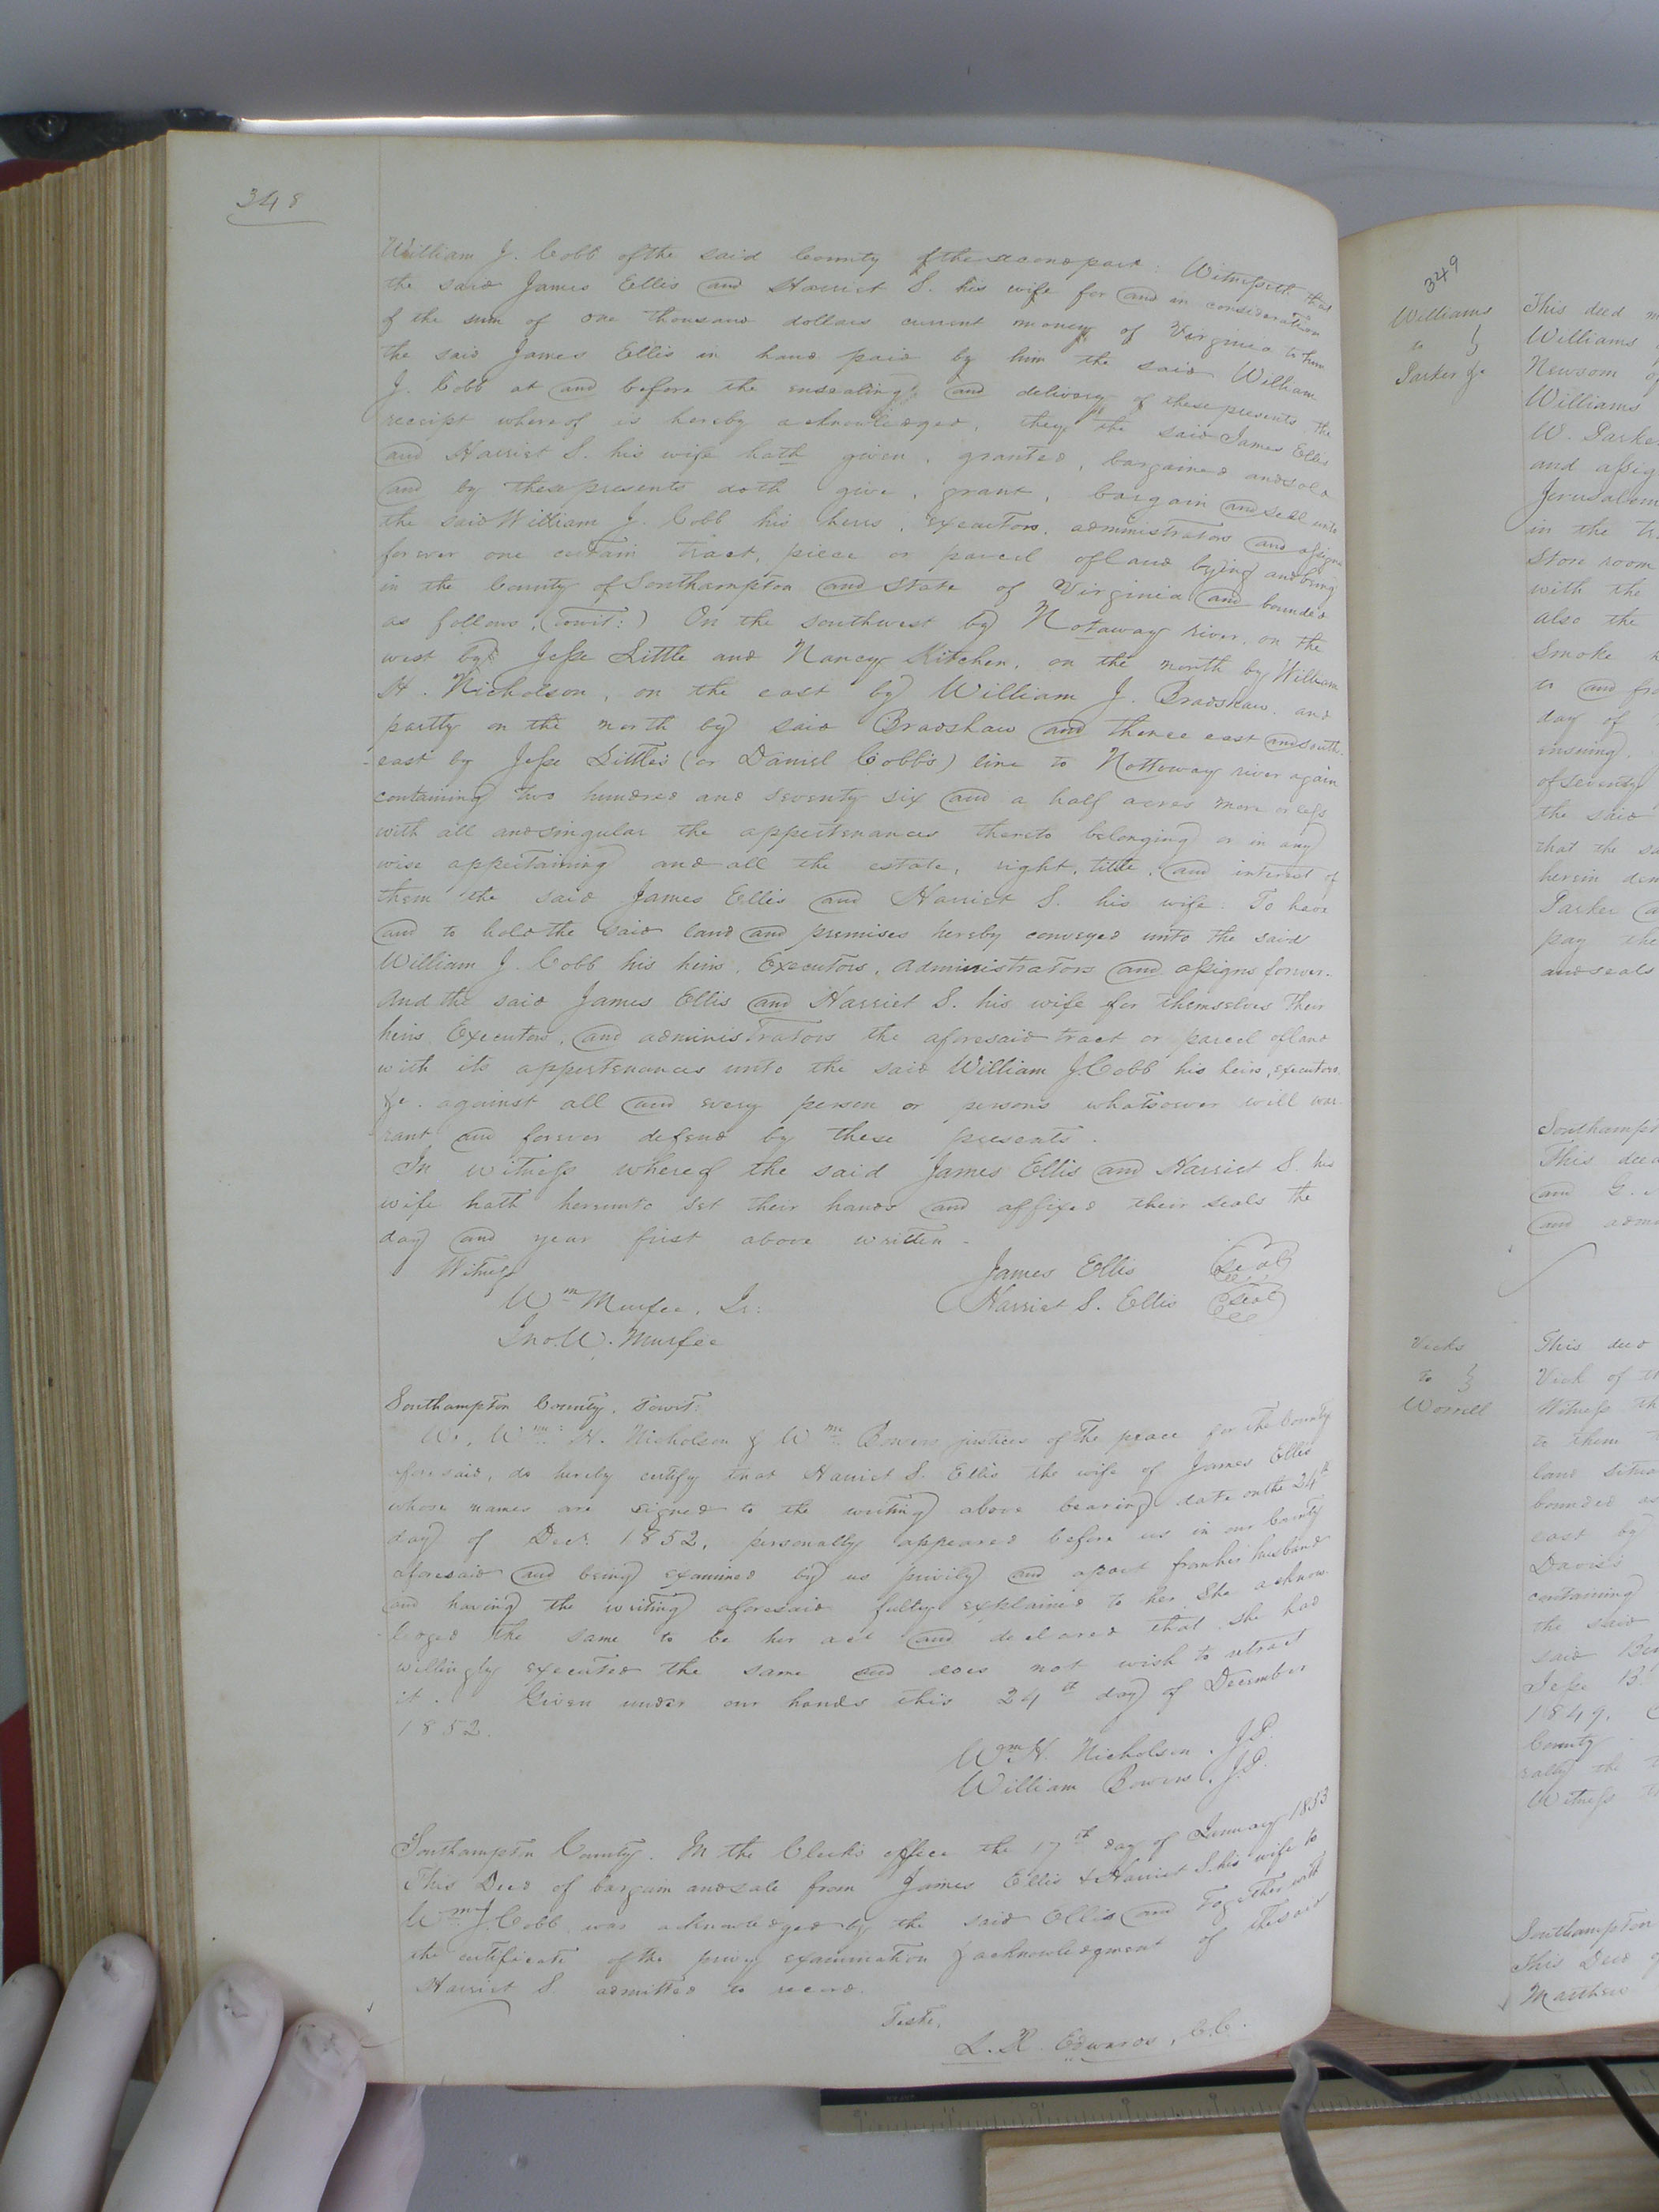 348
William J. Cobb of the said County of the second part: Witnesseth that
the said James Ellis and Harriet S. his wife for and in consideration
of the sum of one thousand dollars current money of Virginia to him
the said James Ellis in hand paid by him the said William
J. Cobb at and before the ensealing and delivery of these presents the
receipt whereof is hereby acknowledged, they the said James Ellis
and Harriet S. his wife hath given, granted, bargained and sold
and by these presents doth give, grant, bargain and sell unto
the said William J. Cobb his heirs, executors, administrators and assigns
forever one certain tract, piece or parcel of land lying and being
in the County of Southampton and State of Virginia and bounded
as follows, (towit:) On the southwest by Notaway river, on the
west by Jesse Little and Nancy Kitchen, on the north by William
H. Nicholson, on the east by William J. Bradshaw, and
partly on the north by said Bradshaw and thence east and south-
east by Jesse Little's (or Daniel Cobb's) line to Nottoway river again
containing two hundred and seventy six and a half acres more or less
with all and singular the appertenances thereto belonging or in any
wise appertaining and all the estate, right, title, and interest of
them the said James Ellis and Harriet S. his wife. To have
and to hold the said land and premises hereby conveyed unto the said
William J. Cobb his heirs, Executors, Administrators and assigns forever.
And the said James Ellis and Harriet S. his wife for themselves their
heirs Executors, and administrators the aforesaid tract or parcel of land
with its appertenances unto the said William J. Cobb his heirs, executors
&c. against all and every person or persons whatsoever will war-
rant and forever defend by these presents.
In witness whereof the said James Ellis and Harriet S. his
wife hath hereunto set their hands and affixed their seals the
day and year first above written.
Witness
James Ellis Seal
Wm Murfee, Sr: Harriet S. Ellis Seal
Jno. W. Murfee
Southampton County, Towit:
We, Wm: H. Nicholson & Wm Bowers justices of the peace for the County
aforesaid, do hereby certify that Harriet S. Ellis the wife of James Ellis
whose names are signed to the writing above bearing date on the 24th
day of Decr. 1852, personally appeared before us in our County
aforesaid and being examined by us privily and apart from her husband
and having the writing aforesaid fully explained to her she acknow-
leged the same to be her act and declared that she had
willingly executed the same and does not wish to retract
it. Given under our hands this 24th day of December
1852.
Wm H. Nicholson, J.P.
William Bowers, J.P.
Southampton County. In the Clerk's office the 17th day of January 1853
This Deed of bargain and sale from James Ellis & Harriet S. his wife to
Wm J. Cobb was acknowledged by the said Ellis and together with
the certificate of the privy examination & acknowledgment of the said
Harriet S. admitted to record.
Teste,
L. R. Edwards, C.C.
349
Williams
to
Parker &c
This deed
Williams
Newsom of
Williams
W. Parker
and assig
Jerusalem
in the
Store room
with the
also the
Smoke
to and fro
day of
ensuing.
of seventy
the said
that the
herein dem
Parker
pay the
and seals
Southampt
This deed
and G.
and adm
Vicks
to
Worrell
This deed
Vick of
Witness th
to them
land situa
bounded as
east by
Davis's
containing
the said
said Ben
Jesse B.
1849.
County
rally the
Witness
Southampton
This Deed
Matthew